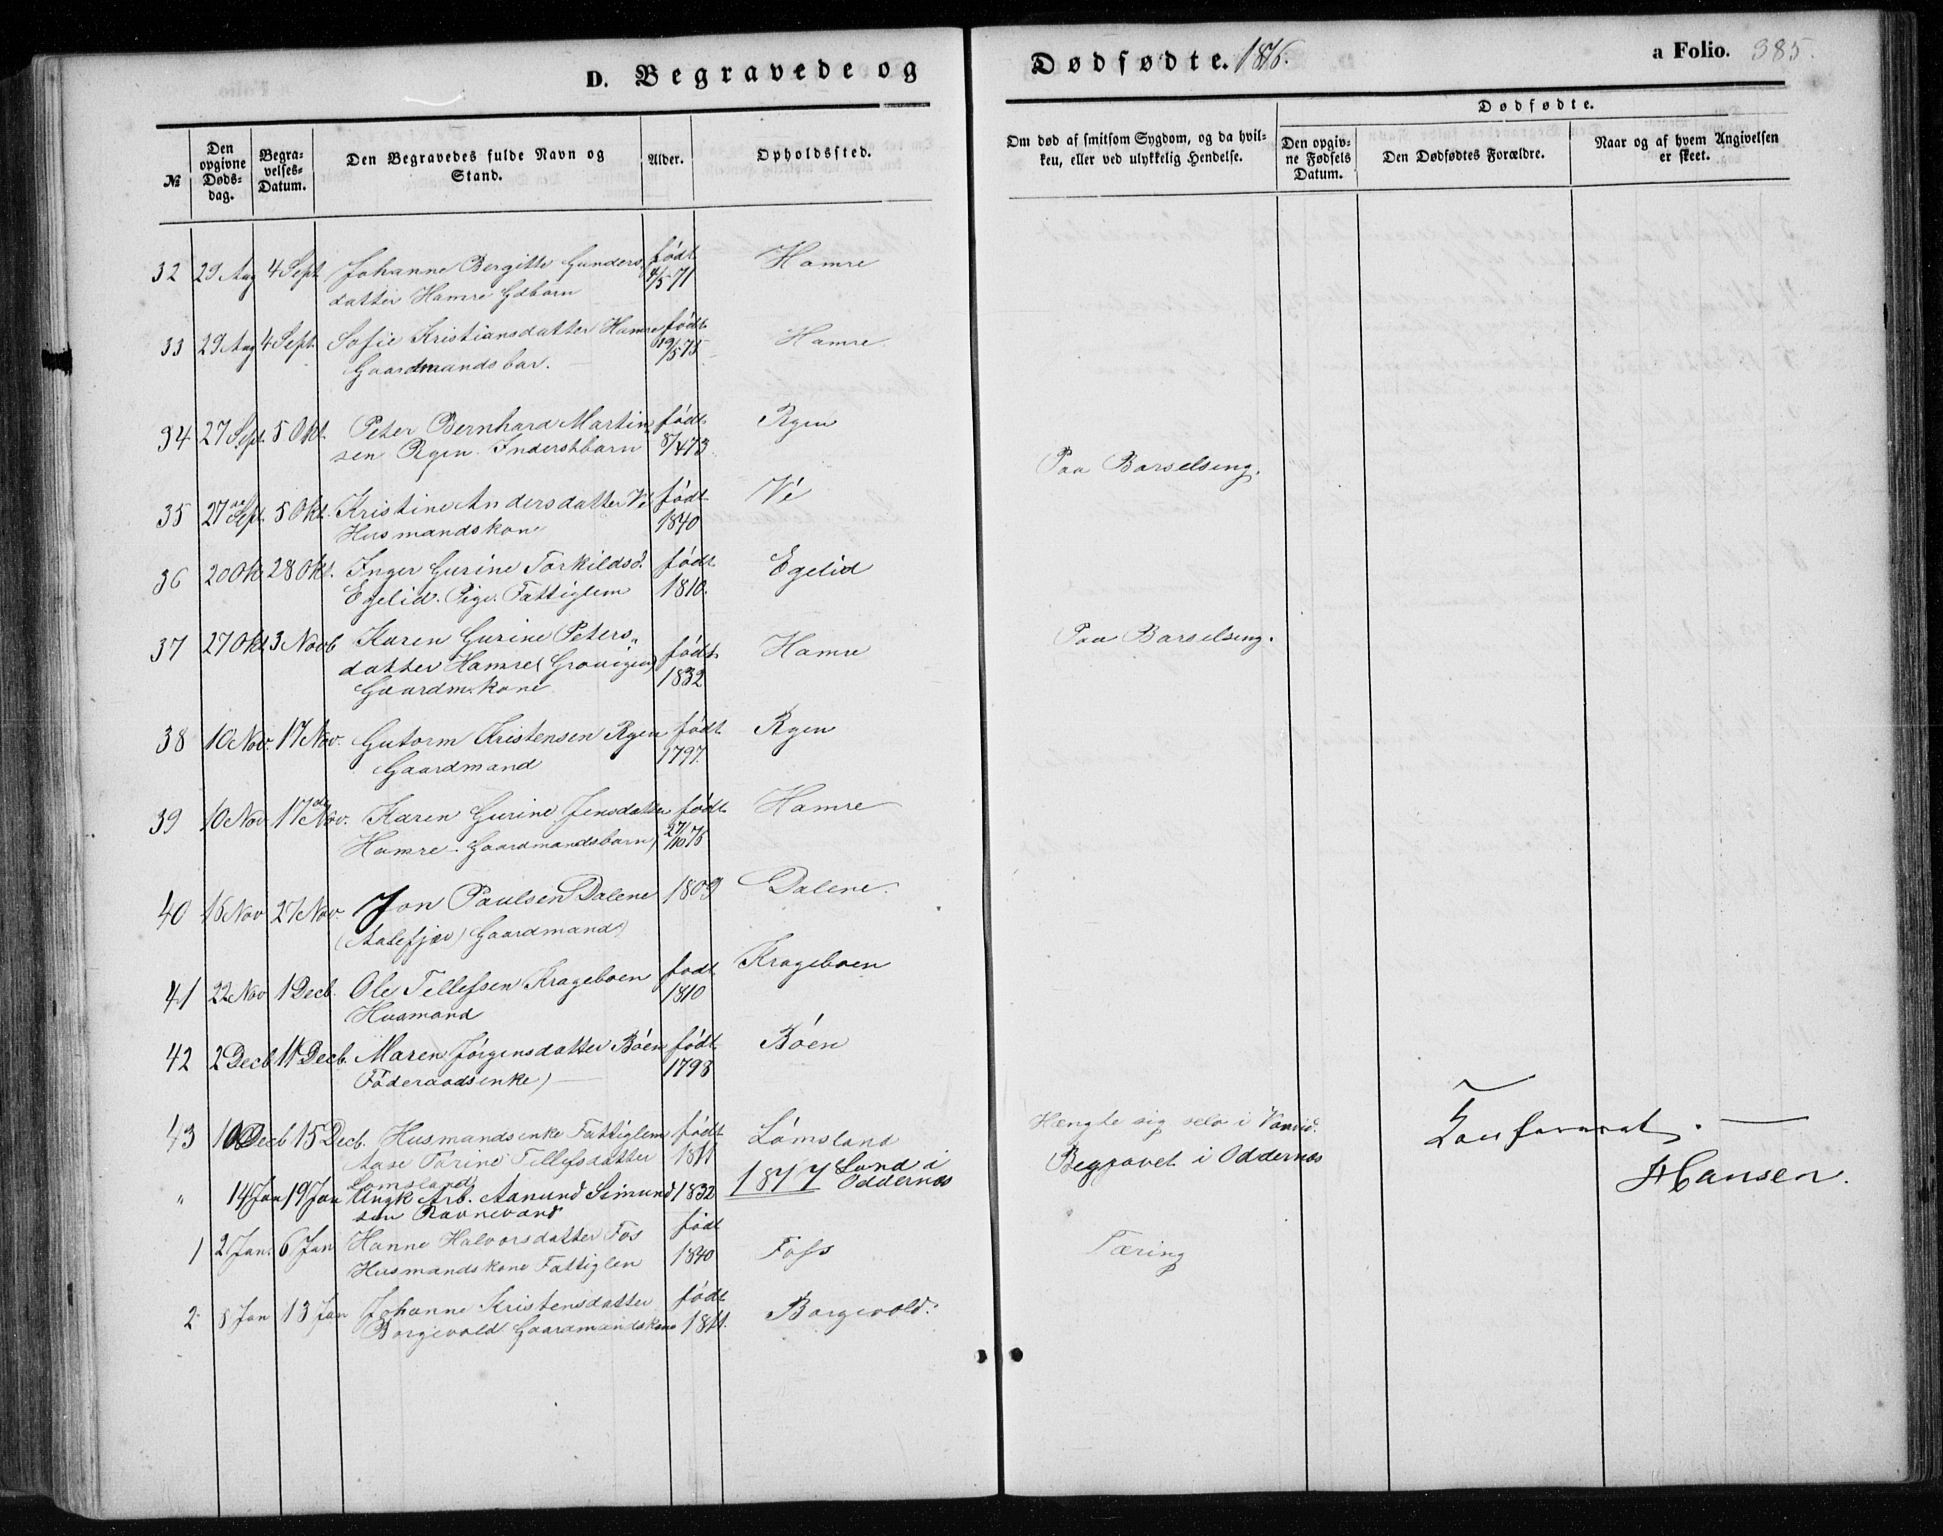 D. Begravede og Dødfødte. 1876. a Folio. 385.
№
Den opgivne Døds-dag.
Begra-velses-Datum.
Den Begravedes fulde Navn og Stand.
Alder.
Opholdssted.
Om død af smitsom Sygdom, og da hvil-
ken, eller ved ulykkelig Hendelse.
Dødfødte.
Den opgiv-ne Fødsels Datum.
Den Dødfødtes Forældre.
Naar og af hvem Angivelsen er skeet.
32 29 Aug 4 Sept Johanne Bergitte Gunders født Hamre
datter Hamre Gdbarn 4/5 71
33 29 Aug 4 Sept. Sofie Kristiansdatter Hamre født Hamre
Gaardmandsbar. 19/5 75
34 27 Sept. 5 Okt. Peter Bernhard Martin født Rgen
sen Rgen. Inderstbarn 8/4 73
35 27 Sept. 5 Okt. Kristine Andersdatter Vé født Vé Paa Barselseng.
Husmandskone 1840
36 20 Okt 28 Okt. Inger Gurine Torkildsd. født Egelid
Egelid. Pige. Fattiglem 1810.
37 27 Okt 3 Novb Karen Gurine Peters„ Hamre Paa Barselseng.
datter Hamre født
Gaardm.kone 1832
38 10 Nov. 17 Nov. Gutorm Kristensen Rgen født Rgen
Gaardmand 1797.
39 10 Nov 17 Nov. Karen Gurine Jensdatter født Hamre
Hamre. Gaardmandsbarn) 27/10 75
40 16 Nov 27 Nov. Jon Paulsen Dalene 1809 Dalene.
(Aalefjær) Gaardmand)
41 22 Nov 1 Decb. Ole Tellefsen Krageboen født Krageboen
Husmand 1810
42 2 Decb 11 Decb. Maren Jørgensdatter Bóen født Bóen
Føderaadsenke) 1798
43 10 Decb 15 Decb. Husmandsenke Fattiglem født Lómsland Hængte sig selv i
Aase Torine Tellefsdatter 1811
Lomsland
Konfereret. —
Hansen.
1877
„ 14 Jan 19 Jan Ungk Arb. Aanund Simund 1832 Lund i Oddernes Begravet i Oddernes
sen Ravnevand
1 2 Jan. 6 Jan Hanne Halvorsdatter Fos født Foss Tæring
Husmandskone Fattiglem 1840
2 8 Jan 13 Jan Johanne Kristensdatter født Borgevold.
Borgevold Gaardmandskone 1811.